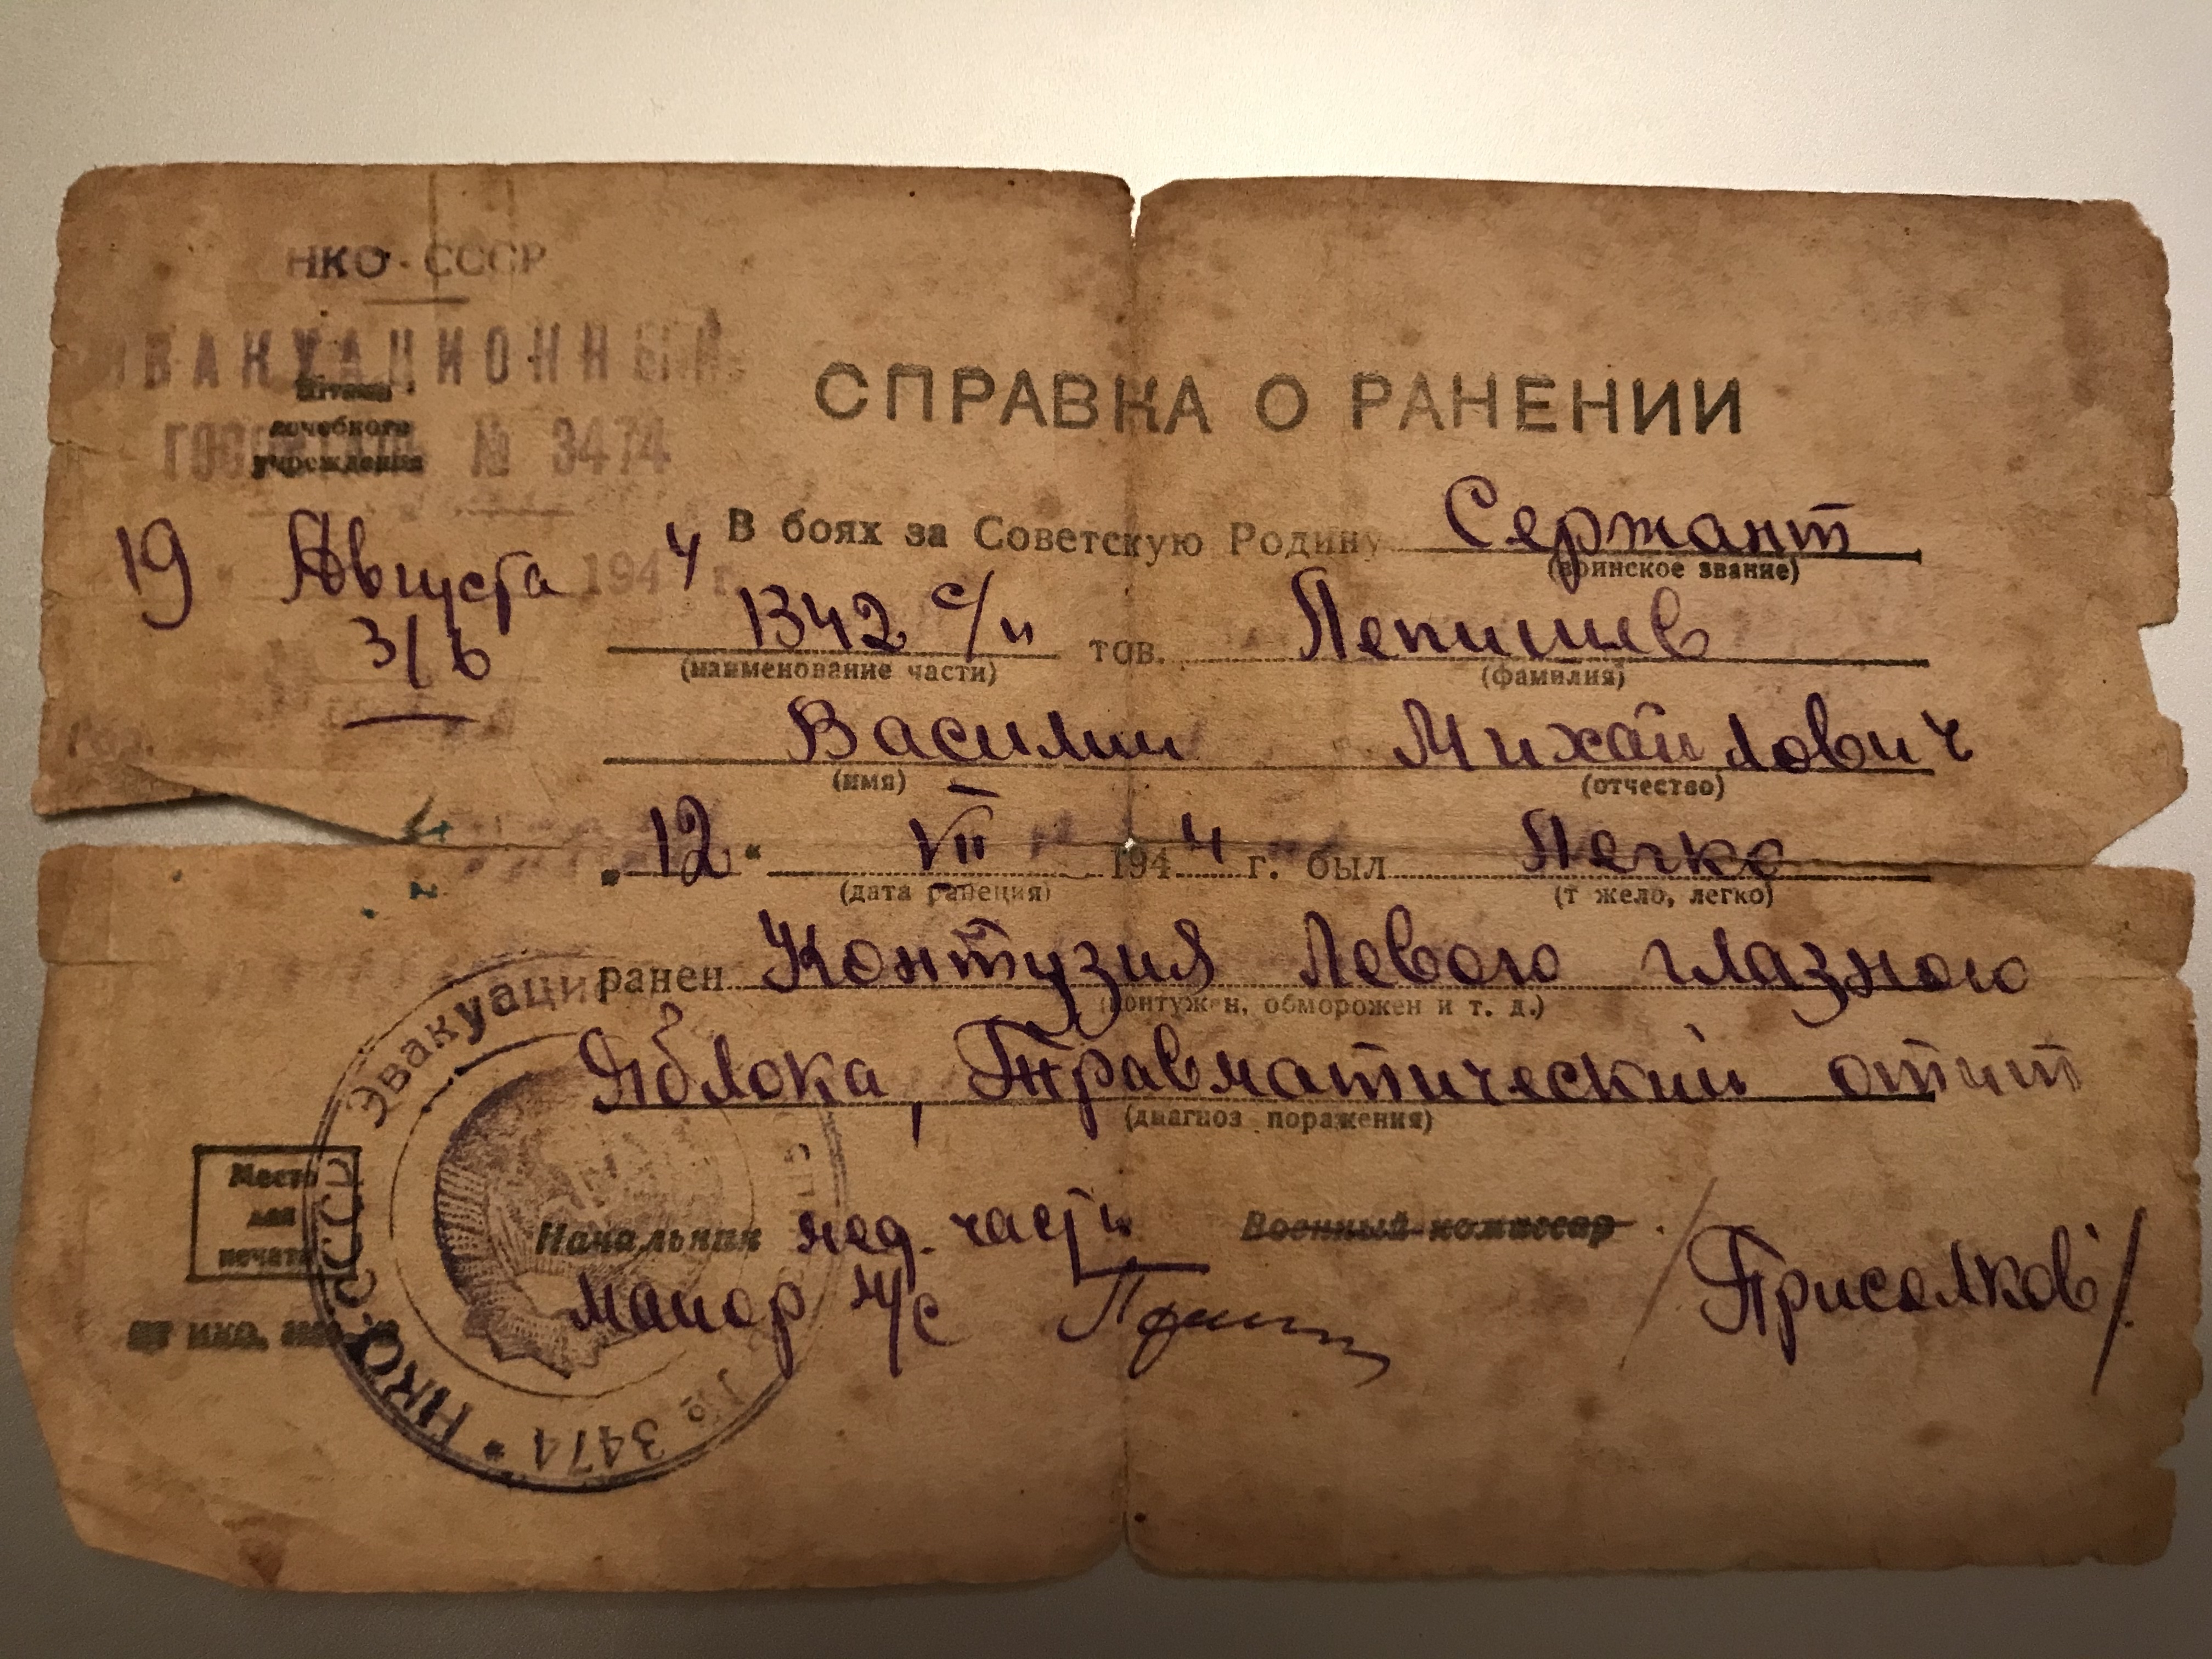 НКО-СССР
ЭВАКУАЦИОННЫЙ
Штамп
лечебного
учреждения
ГОСПИТАЛЬ № 3474
19 Августа 1944 г.
3/б
СПРАВКА О РАНЕНИИ
В боях за Советскую Родину Сержант
(воинское звание)
1342 с/п тов. Лепишев
(наименование части) (фамилия)
Василий Михайлович
(имя) (отчество)
„12“ VII 1944 г. был Легко
(дата ранения) (т жело, легко)
ранен Контузия Левого глазного
(контуж н, обморожен и т. д.)
Яблока, Травматический отит
(диагноз поражения)
Место
для
печати
Начальник мед. части Военный комиссар
майор м/с /Присалков/
Эвакуаци
НКО СССР * № 3474